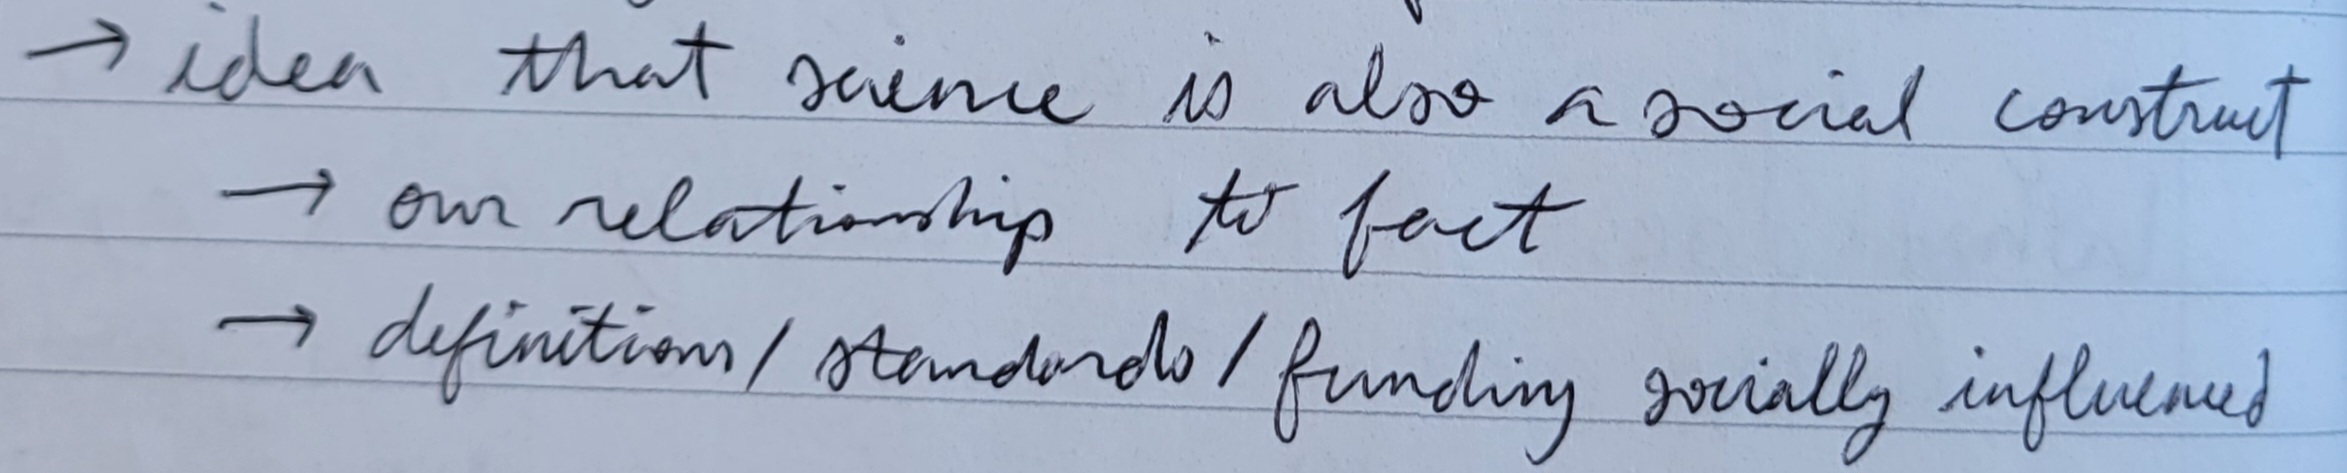 → idea that science is also a social construct
→ our relationship to fact
→ definitions/standards/funding socially influenced